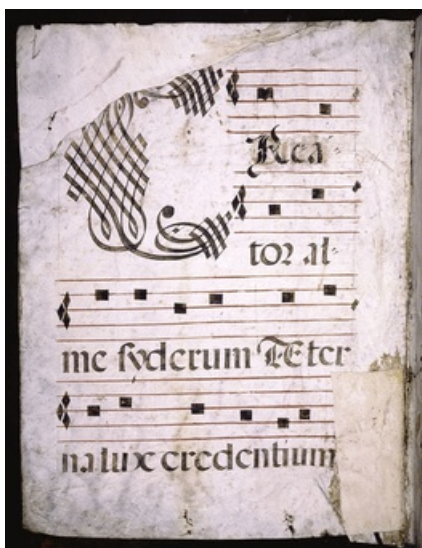 CRea
tor al-
me ſyderum Æter
na lux credentium